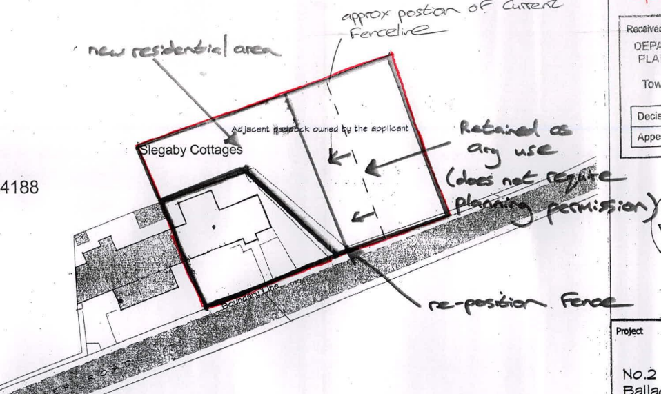 approx postion of current
Fenceline
new residential area
Adjacent paddock owned by the applicant
Slegaby Cottages
Retained as
ag use
(does not require
planning permission)
4188
re-position Fence
Received
DEPA
PLA
Tow
Decis
Appe
Project
No.2
Ballac